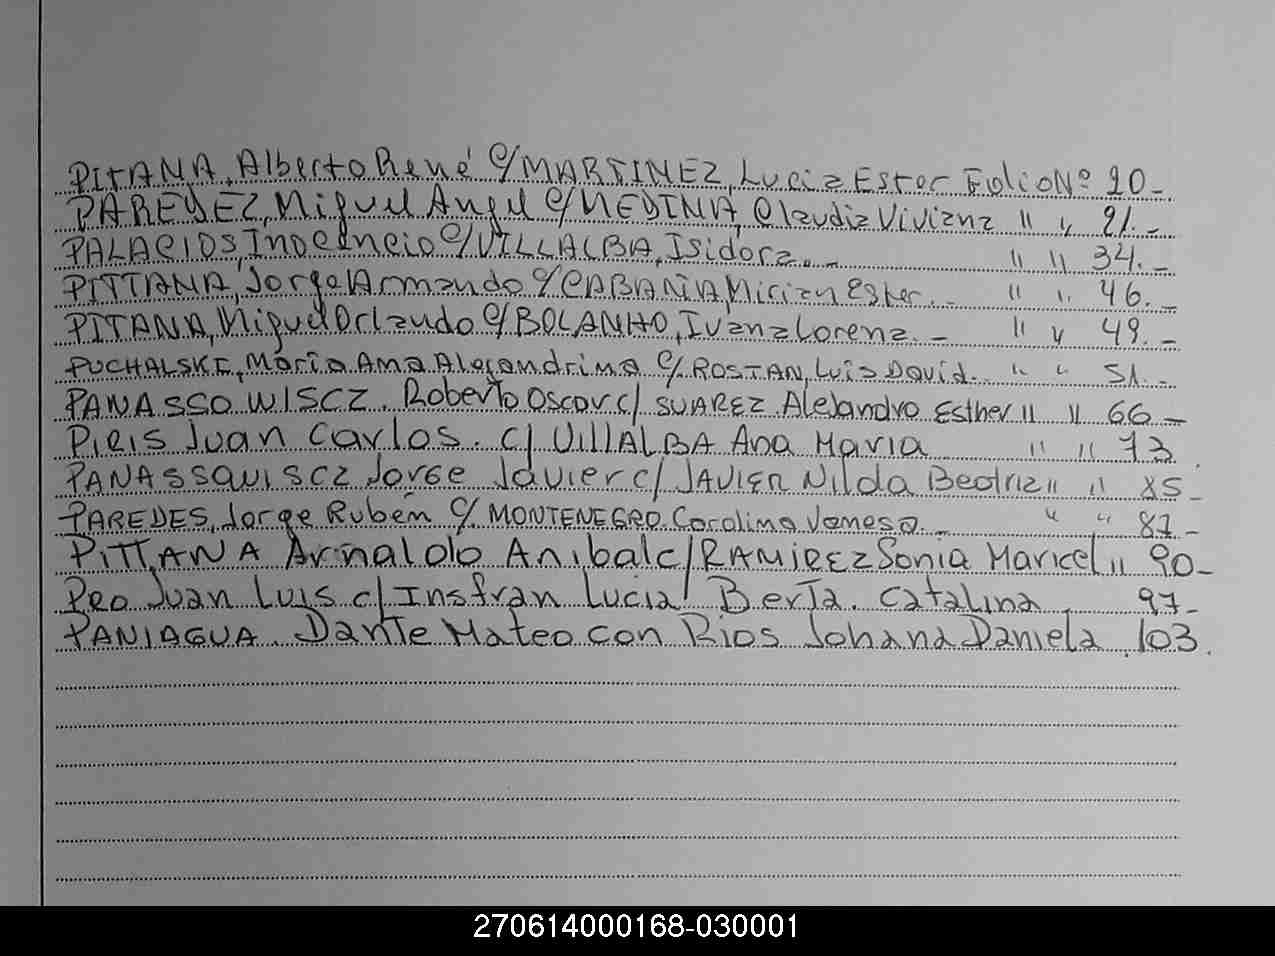 PITANA, Alberto René c/ MARTINEZ, Lucia Ester Folio Nº 20.-
PAREDEZ, Miguel Angel c/ MEDINA, Claudia Viviana " " 21.-
PALACIOS, Inocencio c/ VILLALBA, Isidora.- " " 34.-
PITTANA, Jorge Armando c/ CABAÑA, Mirian Ester.- " " 46.-
PITANA, Miguel Orlando c/ BOLANHO, Ivana Lorena.- " " 49.-
PUCHALSKE, Maria Ana Alejandrina c/. ROSTAN, Luis David. " " 51.-
PANASSOWISCZ. Roberto Oscar c/ SUAREZ. Alejandra Esther " " 66-
Pieis Juan Carlos. c/ VillALBA Ana Maria " " 73.
PANASSQUISCZ Jorge Javier c/ JAVIER Nilda Beatriz " " 85-
PAREDES, Jorge Rubén c/ MONTENEGRO. Carolina Vanesa.- " " 87.-
PiTTANA Arnaldo Anibal c/ RAMIREZ Sonia Maricel " 90-
Peo Juan Luis c/ Insfran Lucia Berta. Catalina 97-
PANIAGUA. Dante Mateo con Rios Johana Daniela 103.
270614000168-030001